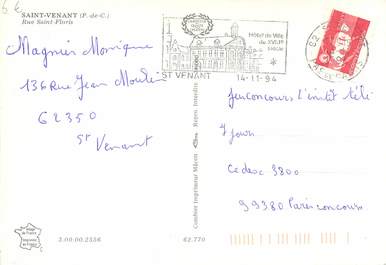 5€
SAINT-VENANT (P.-de-C.)
Rue Saint-Floris
Hôtel de Ville
du XVIIIe
siècle
ST VENANT
14-11-94
62
Magnier Monique
136 Rue Jean Moulin
62350
St Venant
Jeu concours L'intit télé
7 Jours
Cedex 3800
99380 Paris concours
Combier Imprimeur Mâcon
3.00.00.2556
62.770